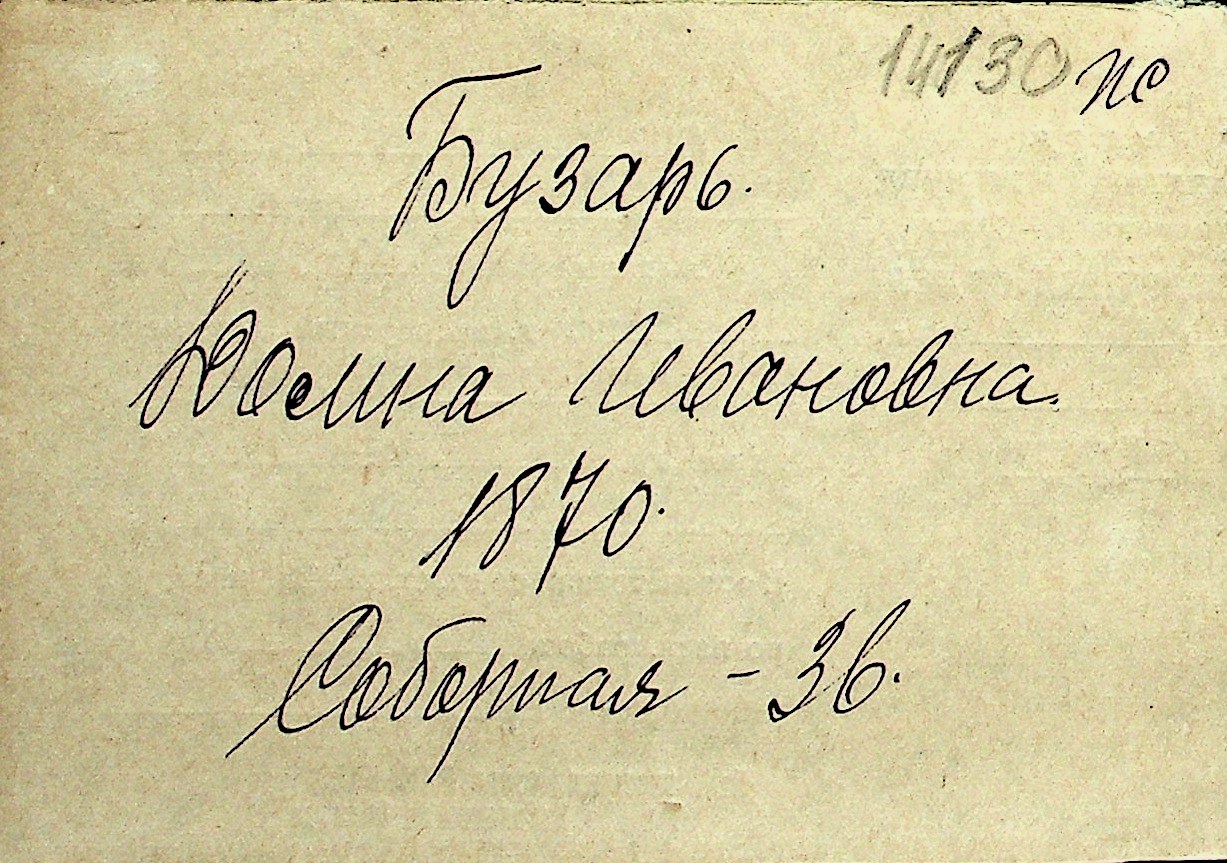 14130 ПС
Бузарь.
Домна Ивановна.
1870.
Соборная - 36.